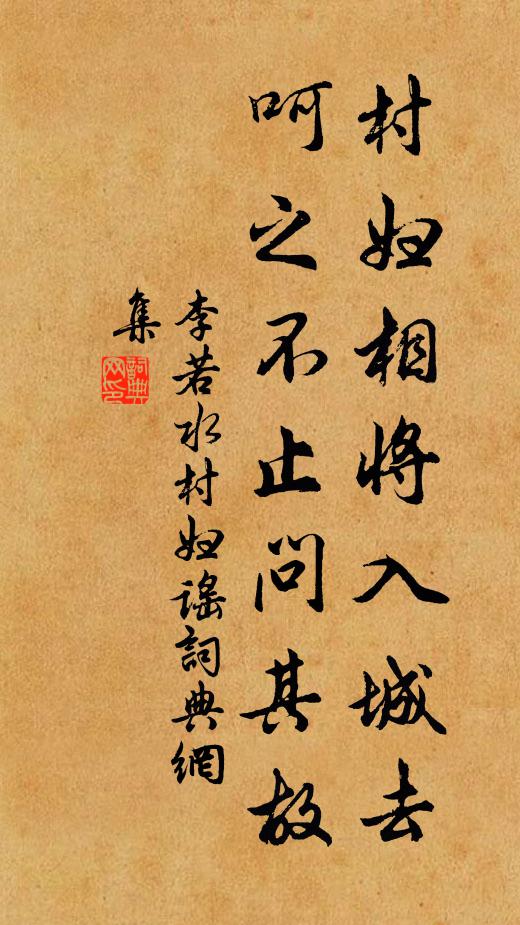 村妇相将入城去
呵之不止问其故
李若水村妇谣詞典網
集
詞典
网印